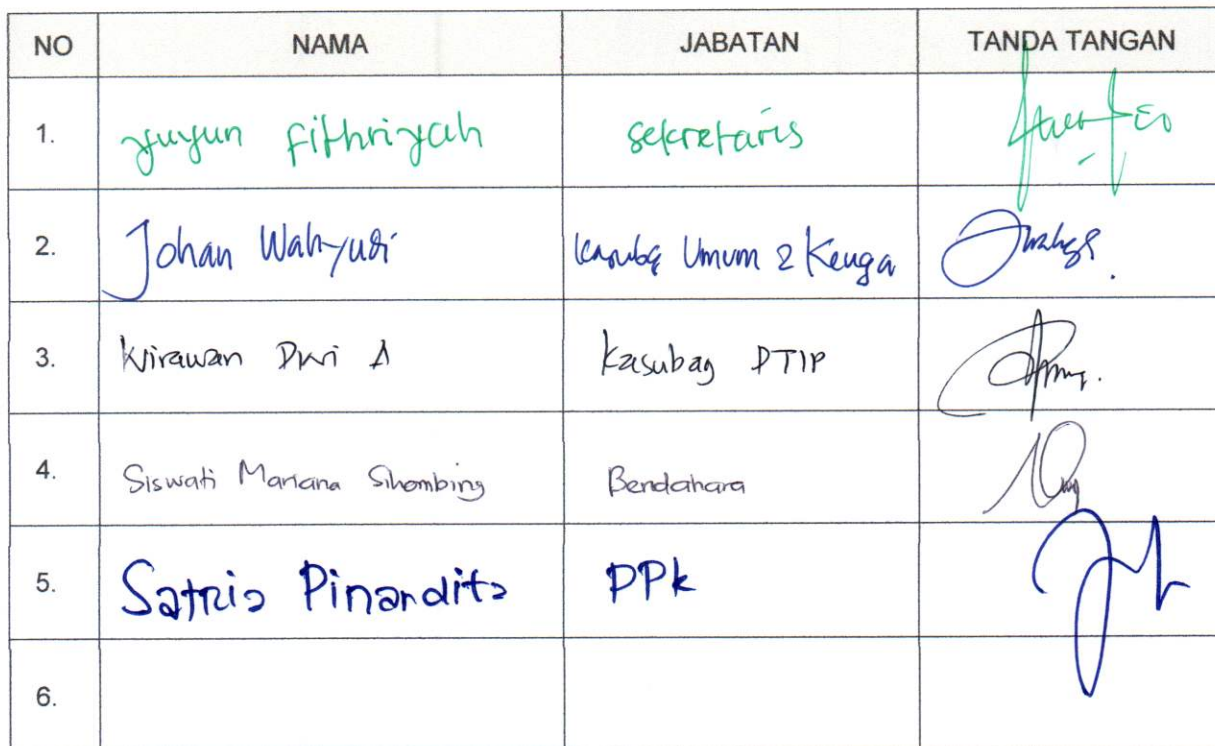 NO NAMA JABATAN TANDA TANGAN
1. Yuyun Fithriyah sekretaris
2. Johan Wahyudi Kasubag Umum & Keuga
3. Wirawan Dwi A Kasubag DTIP
4. Siswati Mariana Sihombing Bendahara
5. Satria Pinandita PPK
6.